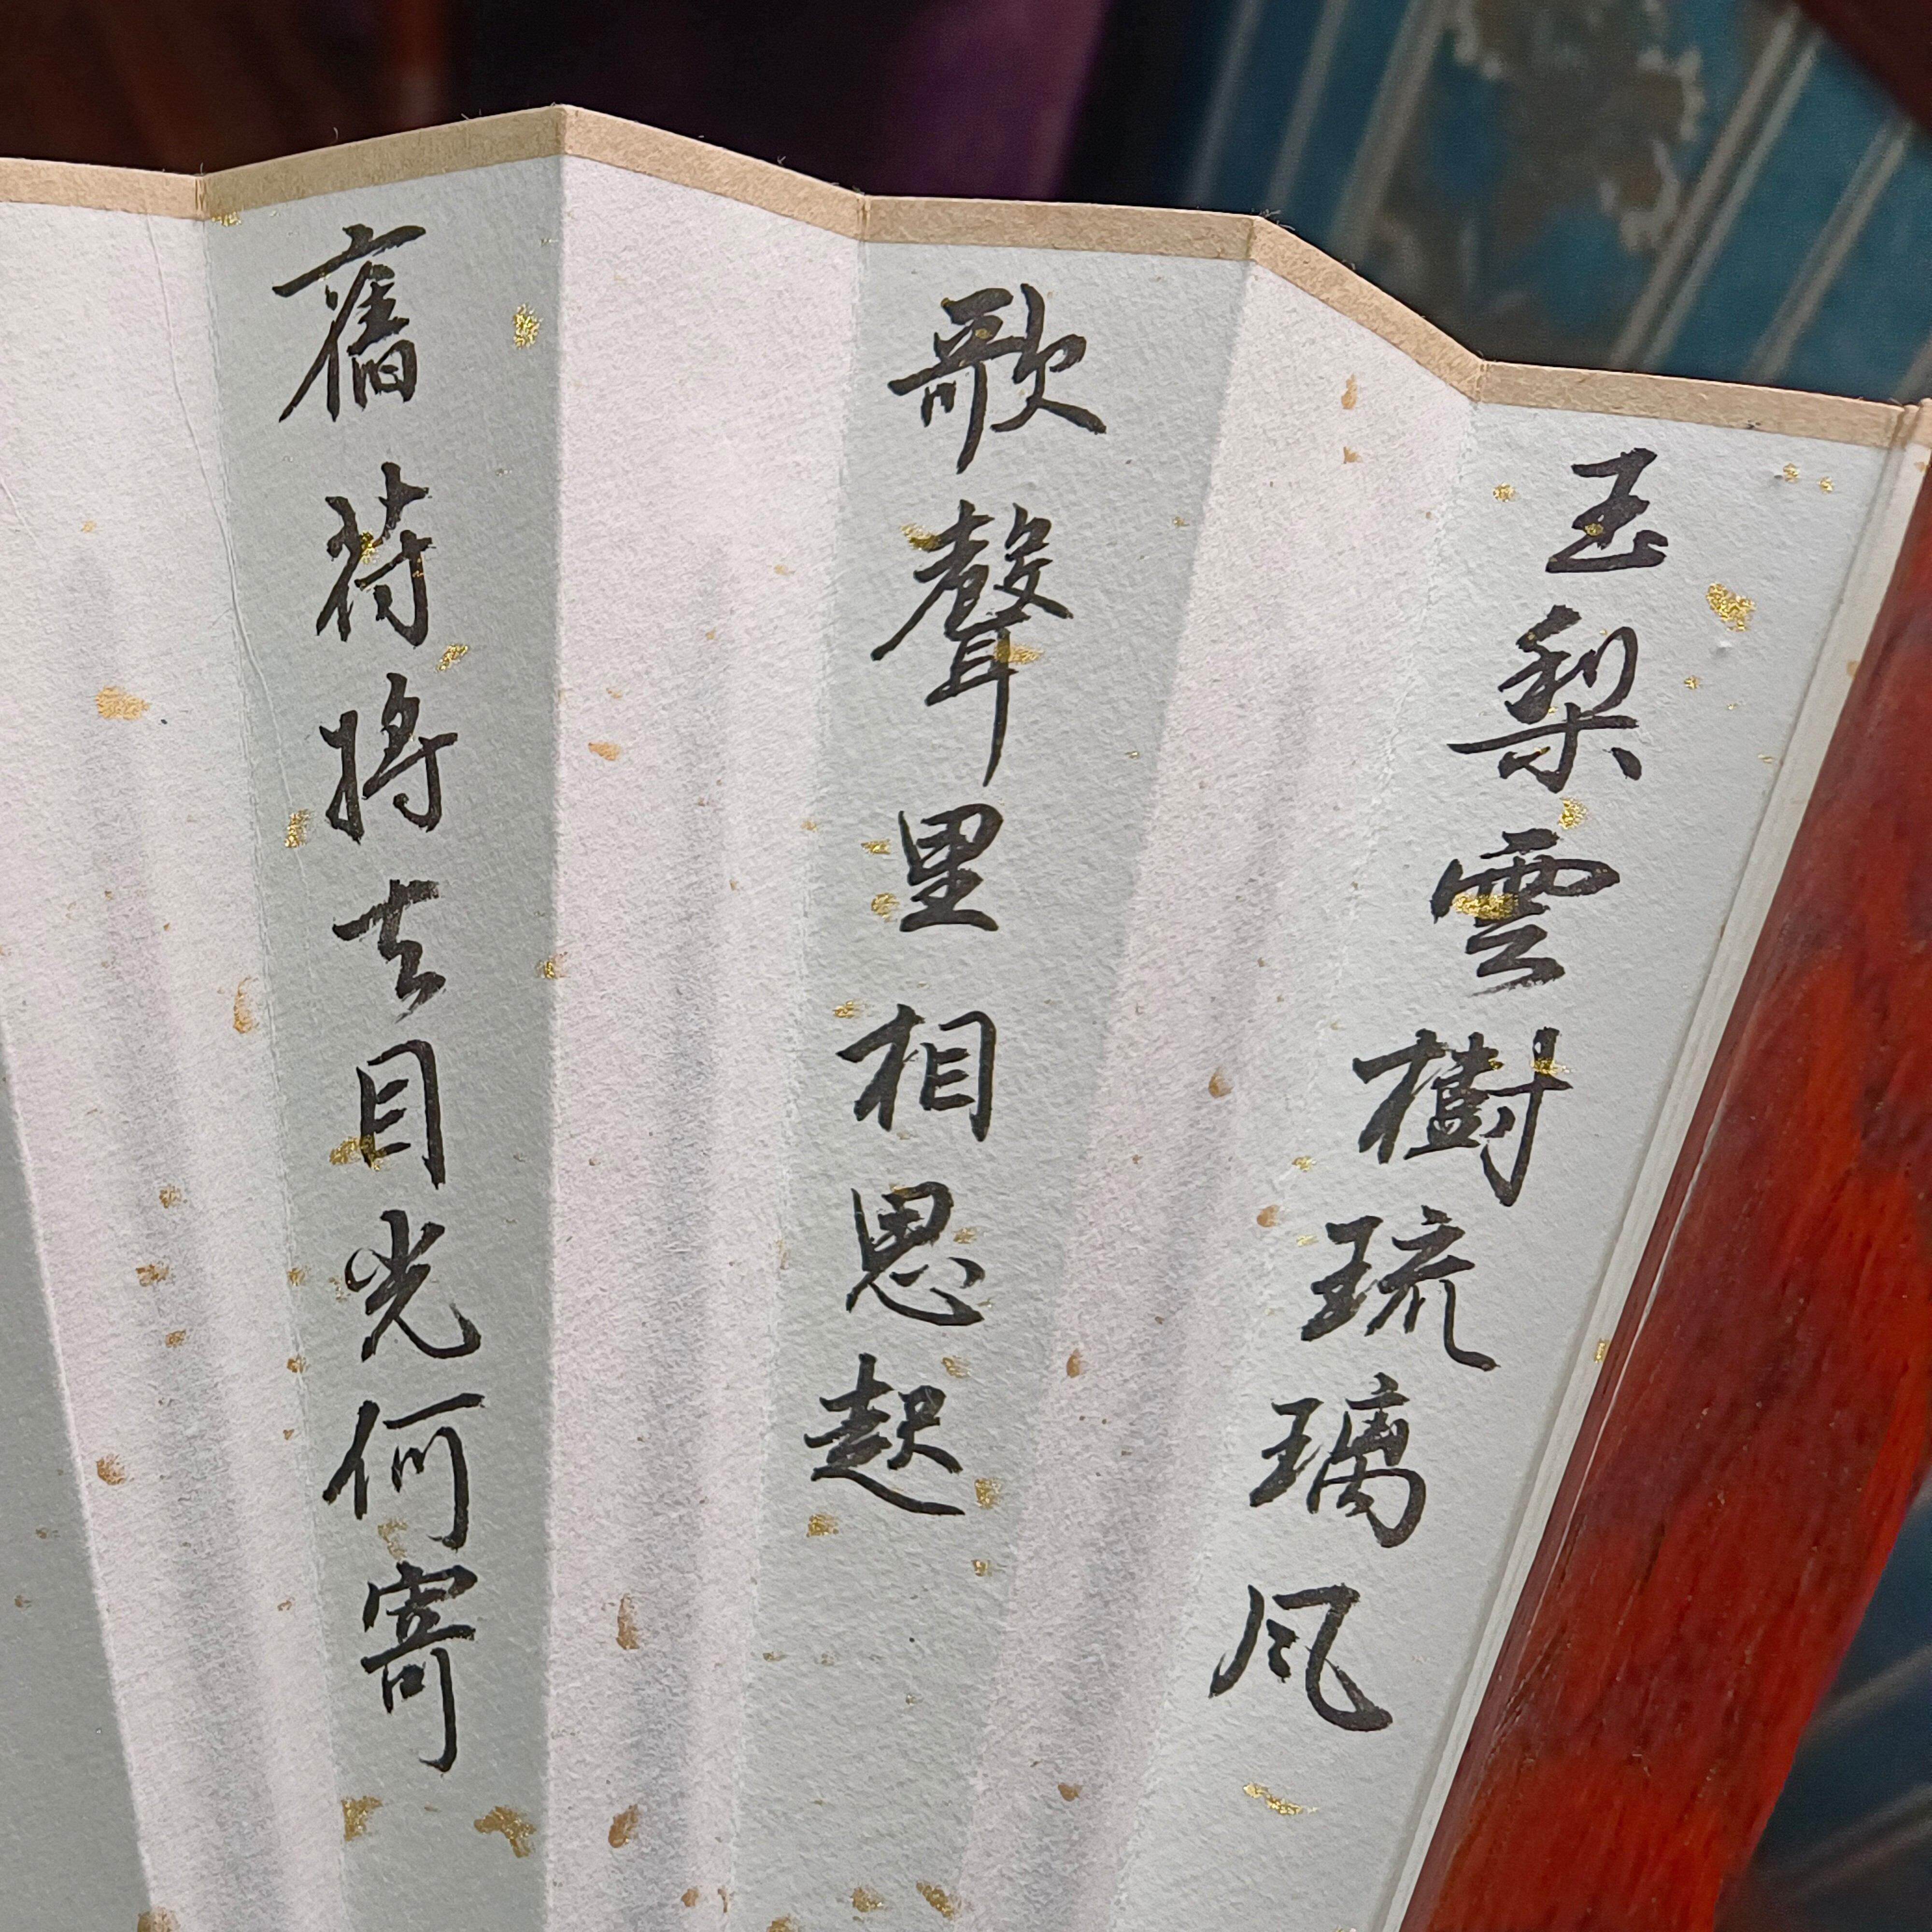 玉梨雲樹琉璃風
歌聲里相思起
舊符將去目光何寄